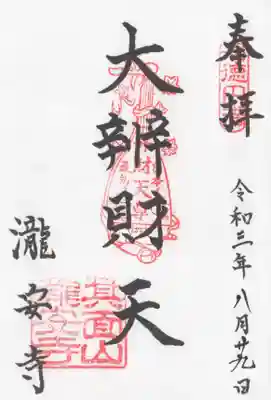 奉拝
令和三年八月廿九日
大辨財天
瀧安寺
箕面山
瀧安寺